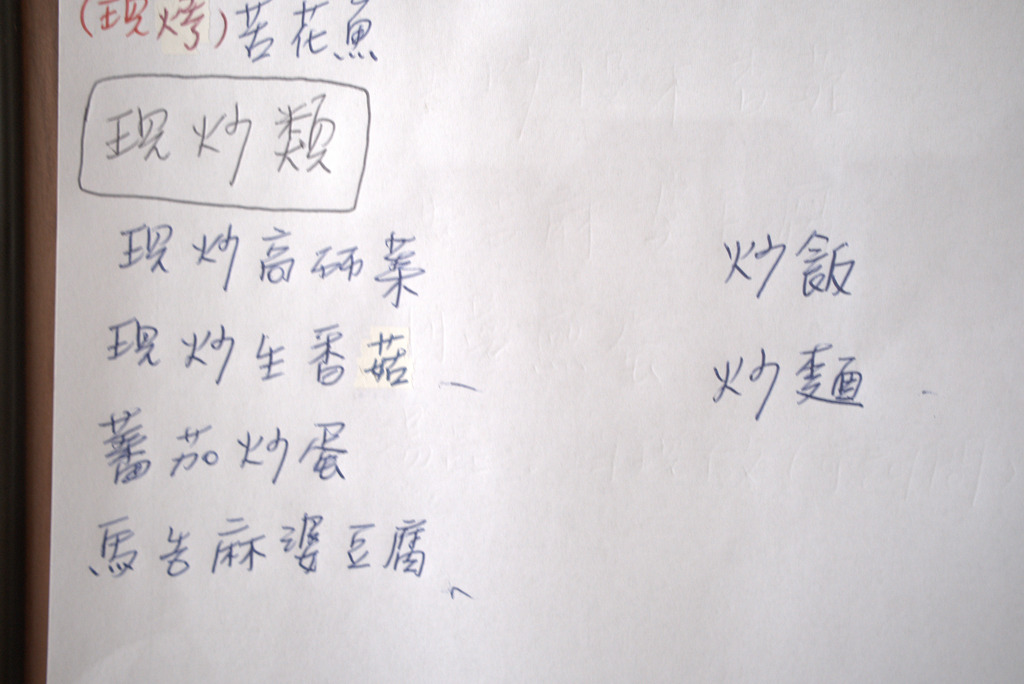 (現烤)苦花魚
現炒類
現炒高麗菜
現炒生香菇
蕃茄炒蛋
馬告麻婆豆腐
炒飯
炒麵